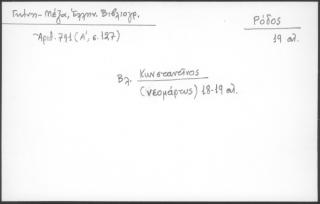 Γκίνη - Μέξα, Ελλην. Βιβλιογρ.
Ρόδος
Αριθ. 791 (Α', σ. 127)
19 αι.
Βλ. Κωνσταντῖνος
(νεομάρτυς) 18-19 αι.